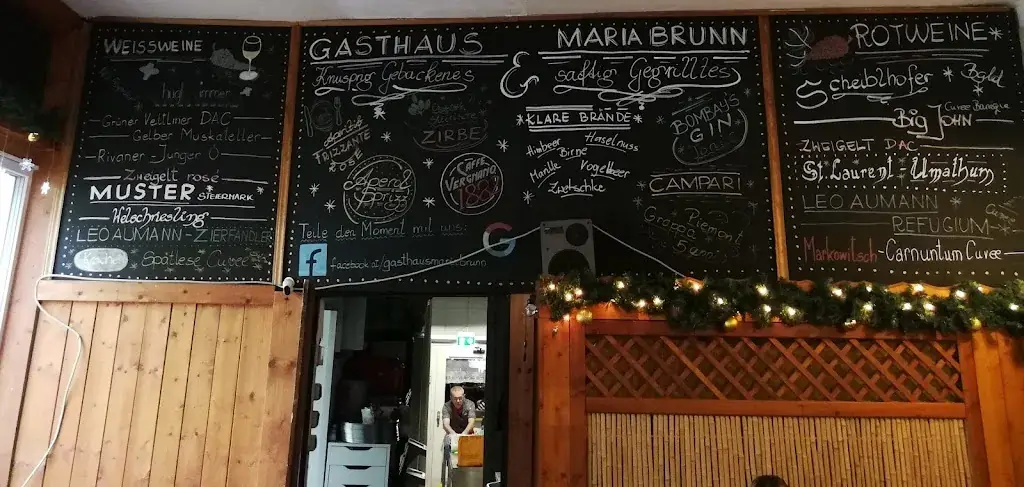 WEISSWEINE
Grüner Veltliner DAC
Gelber Muskateller
Rivaner - Junger Ö
Zweigelt rosé
MUSTER STEIERMARK
Welschriesling
LEO AUMANN - ZIERFANDLER
Spätlese Cuvee
GASTHAUS & MARIA BRUNN
Knusprig Gebackenes
saftig Gegrilltes
FRIZZANTE
ROSÉ
ZIRBE
Aperol
Sprizz
CAFFE
VERGNANO
188
Teile den Moment mit uns:
G
f facebook.at/gasthausmariabrunn
KLARE BRÄNDE
Himbeer Haselnuss
Birne
Marille Vogelbeer
Zwetschke
BOMBAY'S
GIN
CAMPARI
Grappa Piemont
ROTWEINE
Scheiblhofer Bgld
Big John Cuvee Barrique
ZWEIGELT DAC
St. Laurent - Umathum
LEO AUMANN
REFUGIUM
Markowitsch - Carnuntum Cuvee